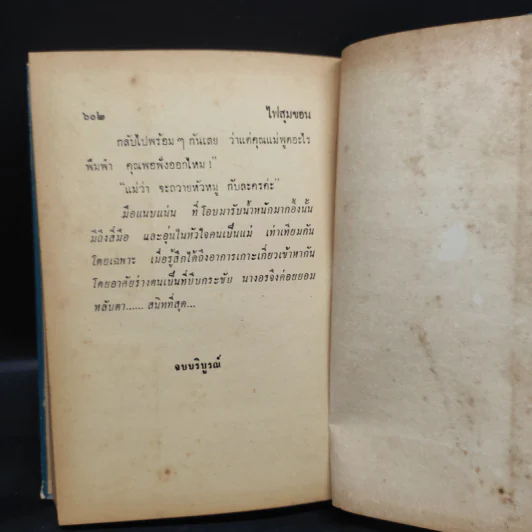 ๖๐๒ ไฟสุมขอน
กลับไปพร้อม ๆ กันเลย ว่าแต่คุณแม่พูดอะไร
พึมพำ คุณพอฟังออกไหม !”
“แม่ว่า จะถวายหัวหมู กับละครค่ะ”
มือแนบแน่น ที่โอบมารับน้ำหนักมากอึ้งนั้น
มีถึงสี่มือ และอุ่นในหัวใจคนเป็นแม่ เท่าเทียมกัน
โดยเฉพาะ เมื่อรู้สึกได้ถึงอาการเกาะเกี่ยวเข้าหากัน
โดยอาศัยร่างตนเป็นที่บีบกระชับ นางอรจึงค่อยยอม
หลับตา...... สนิทที่สุด...
จบบริบูรณ์